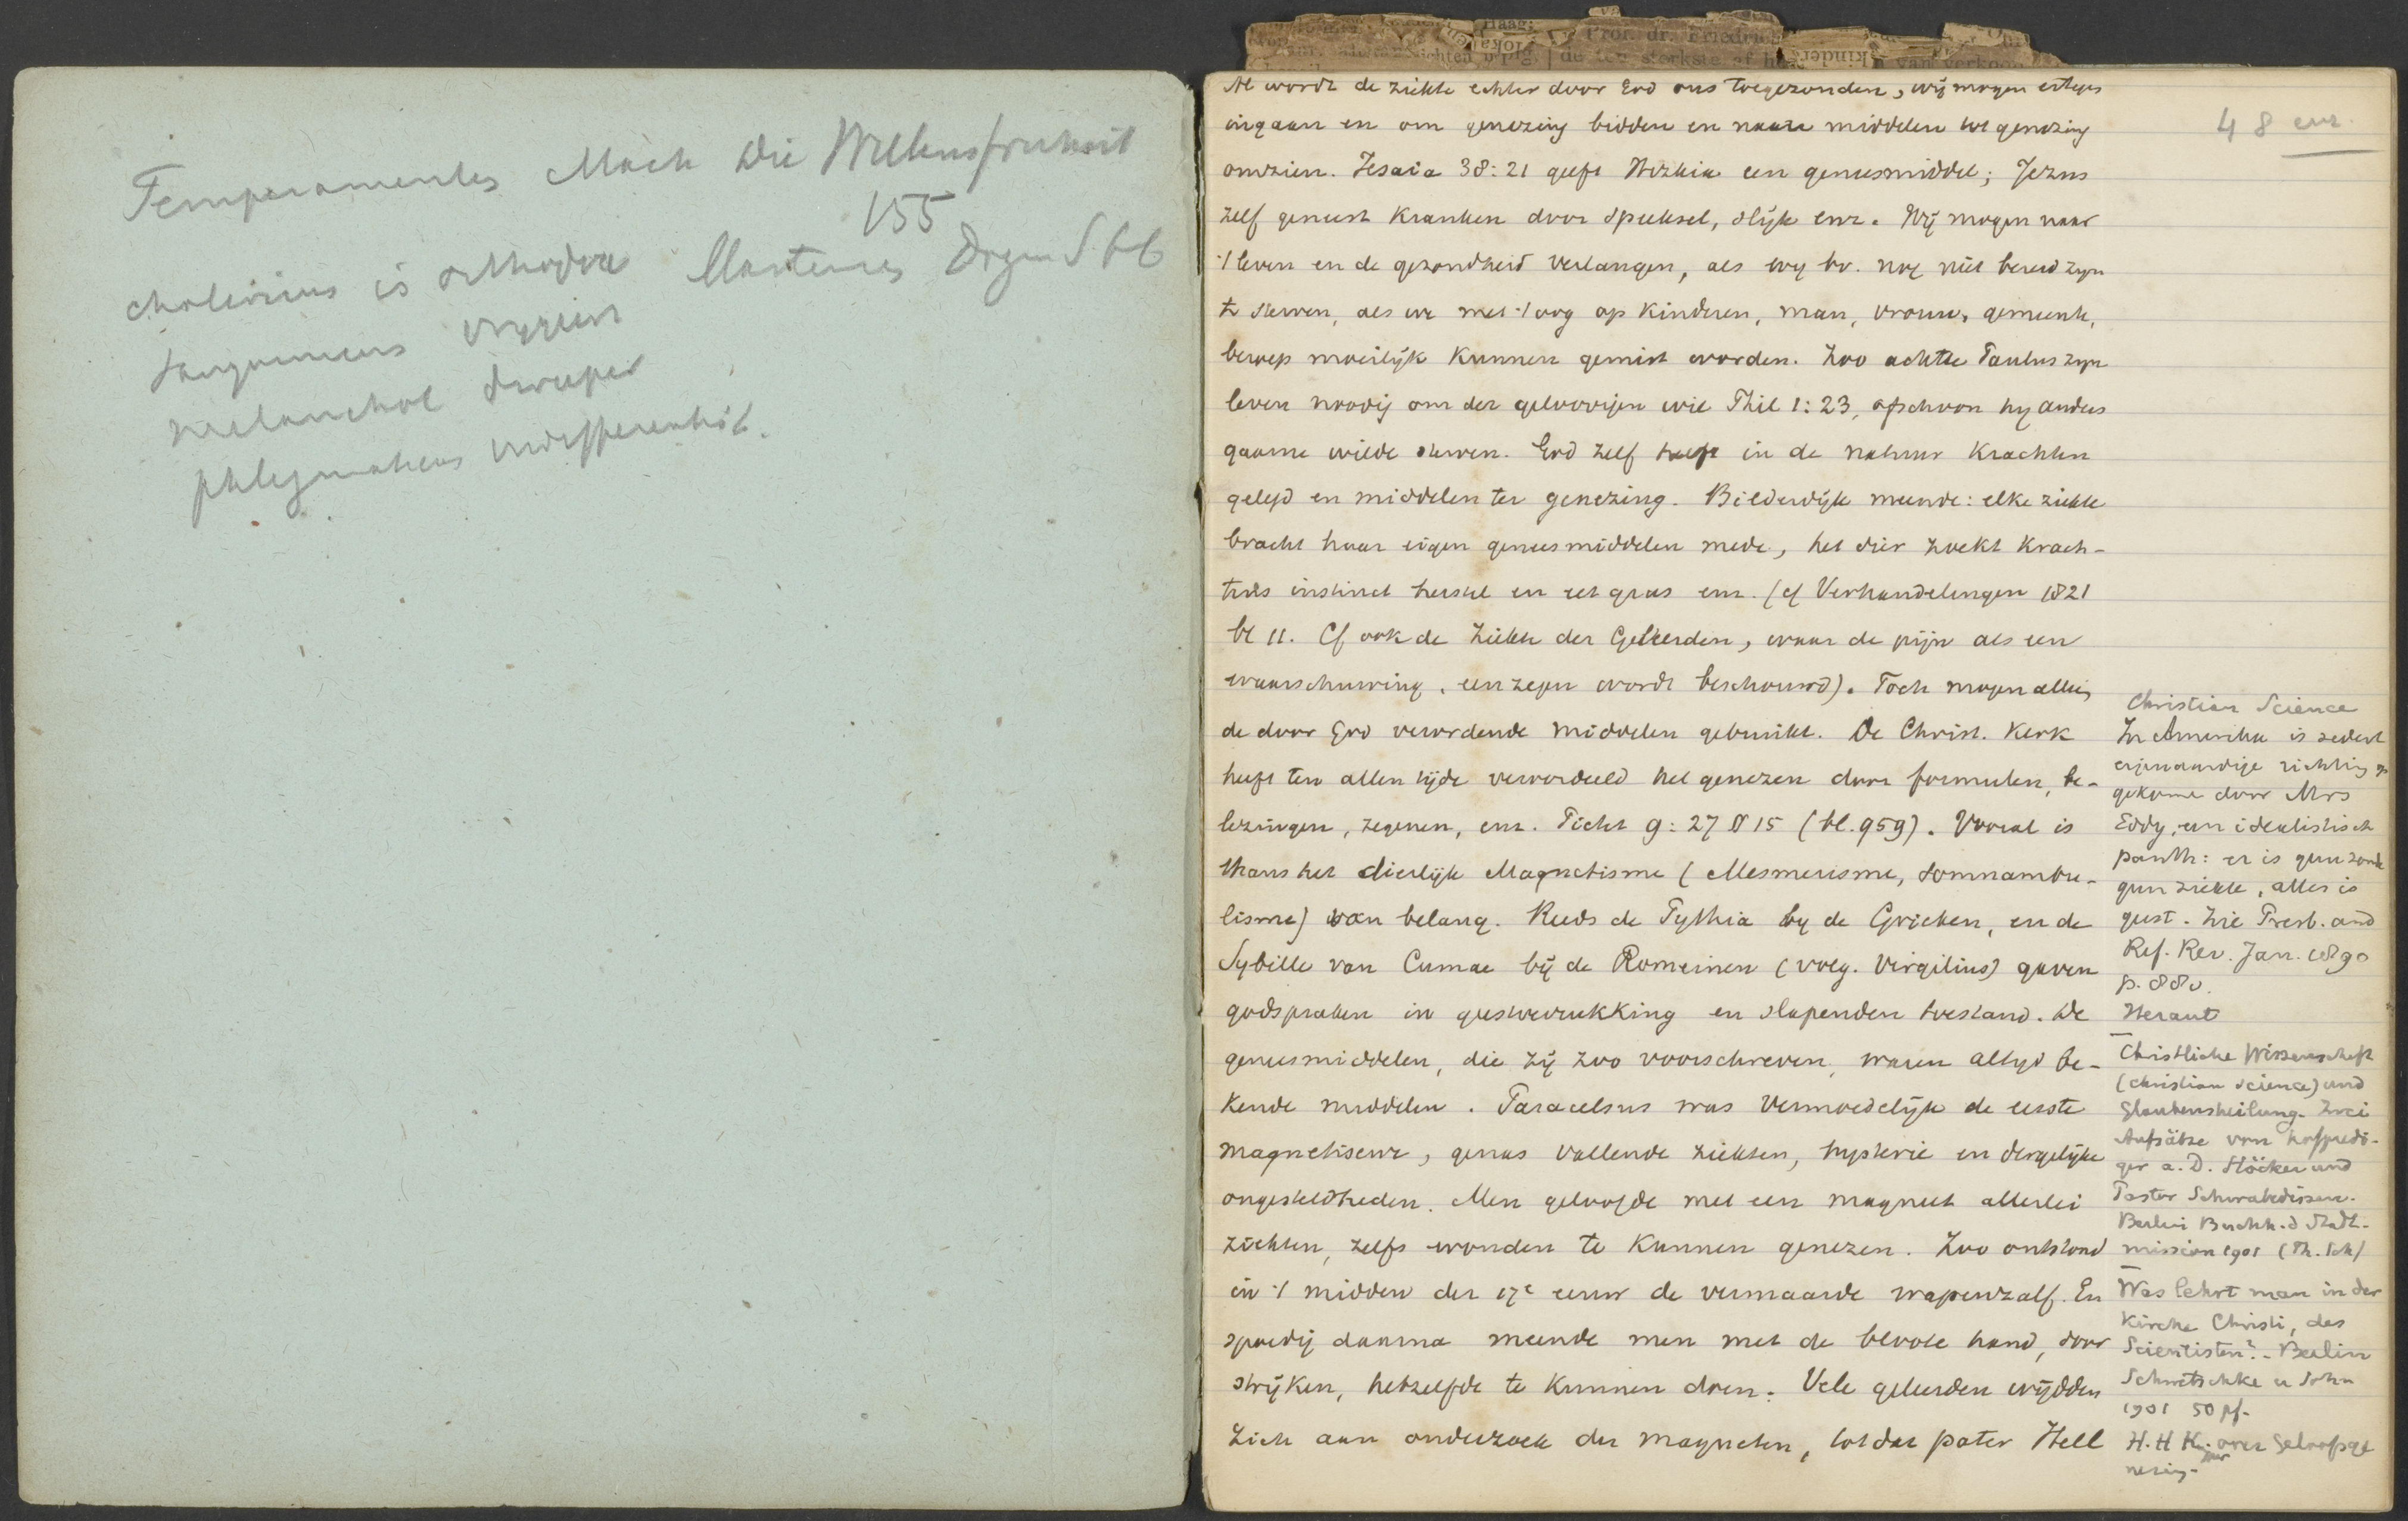 Temperamenten Mach die Willensfreiheit
155
cholericus is orthodox Martensen Dogm § 66
sanguinicus vryzin
melanchol dweeper
phlegmaticus indifferentist.
48 enz.
Al wordt de ziekte echter door God ons toegezonden, wij mogen ertegen
ingaan en om genezing bidden en naar middelen tot genezing
omzien. Jesaia 38:21 geeft Hizkia een geneesmiddel; Jezus
zelf geneest kranken door speeksel, slijk enz. Wij mogen naar
't leven en de gezondheid verlangen, als wy bv. nog niet bereid zyn
te sterven, als we met 't oog op kinderen, man, vrouw, gemeente,
beroep moeilijk kunnen gemist worden. Zoo achtte Paulus zyn
leven noodig om der geloovigen wil Phil 1:23, ofschoon hy anders
gaarne wilde sterven. God zelf heeft in de natuur krachten
gelegd en middelen ter genezing. Bilderdijk meende: elke ziekte
bracht haar eigen geneesmiddelen mede, het dier zoekt krach-
tens instinct herstel en eet gras enz. (cf Verhandelingen 1821
bl 11. Cf ook de Ziekte der Geleerden, waar de pijn als een
waarschuwing, een zegen wordt beschouwd). Toch mogen alleen
de door God verordende middelen gebruikt. De Christ. Kerk
heeft ten allen tijde veroordeeld het genezen door formulen, be-
lezingen, zegenen, enz. Pictet 9:27 § 15 (bl. 959). Vooral is
thans het dierlijk Magnetisme (Mesmerisme, somnambu-
lisme) van belang. Reeds de Pythia by de Grieken, en de
Sybille van Cumae bij de Romeinen (volg. Virgilius) gaven
godspraken in geestverrukking en slapenden toestand. De
geneesmiddelen, die zij zoo voorschreven, waren altyd be-
kende middelen. Paracelsus was vermoedelijk de eerste
magnetiseur, genas vallende ziekten, hysterie en dergelijke
ongesteldheden. Men geloofde met een magneet allerlei
ziekten, zelfs wonden te kunnen genezen. Zoo ontstond
in 't midden der 17e eeuw de vermaarde wapenzalf. En
spoedig daarna meende men met de bloote hand, door
strijken, hetzelfde te kunnen doen. Vele geleerden wijdden
zich aan onderzoek der magneten, totdat pater Hell
Christian Science
In Amerika is sedert
eigenaardige richting op
gekomen door Mrs
Eddy, een idealistisch
panth: er is geen zonde
geen ziekte, alles is
geest. Zie Presb. and
Ref. Rev. Jan. 1890
p. 880.
Heraut
Christliche Wissenschaft
(christian science) und
Glaubensheilung. Zwei
Aufsätze von Hofpredi-
ger a. D. Stöcker und
Pastor Schwabedissen.
Berlin Buchh. d Stadt-
mission 1901 (Th. Sch)
Was lehrt man in der
Kirche Christi, des
Scientisten? - Berlin
Schwetschke u Sohn
1901 50 pf.
H. H. K. over geloofsge
nezing.